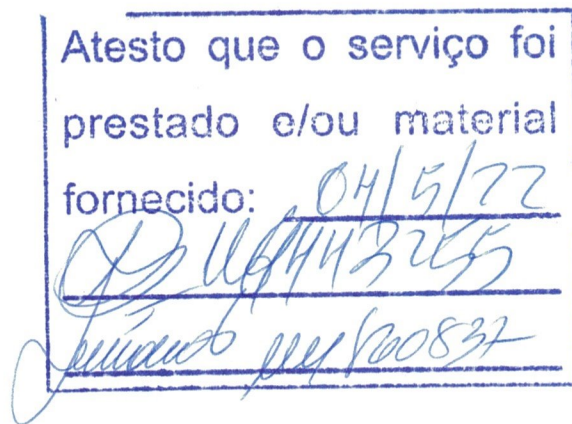 Atesto que o serviço foi
prestado e/ou material
fornecido: 04/5/22
443255
860837